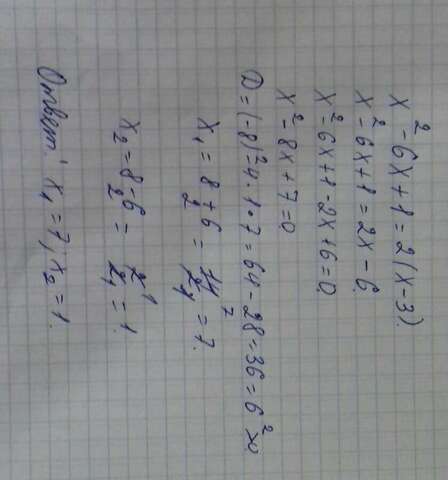 x² - 6x + 1 = 2(x - 3).
x² - 6x + 1 = 2x - 6.
x² - 6x + 1 - 2x + 6 = 0
x² - 8x + 7 = 0
D = (-8)² - 4 · 1 · 7 = 64 - 28 = 36 = 6² >0
x₁ = 8 + 6 / 2 = 14 7 / 2 1 = 7.
x₂ = 8 - 6 / 2 = 2 1 / 2 1 = 1.
Ответ: x₁ = 7; x₂ = 1.